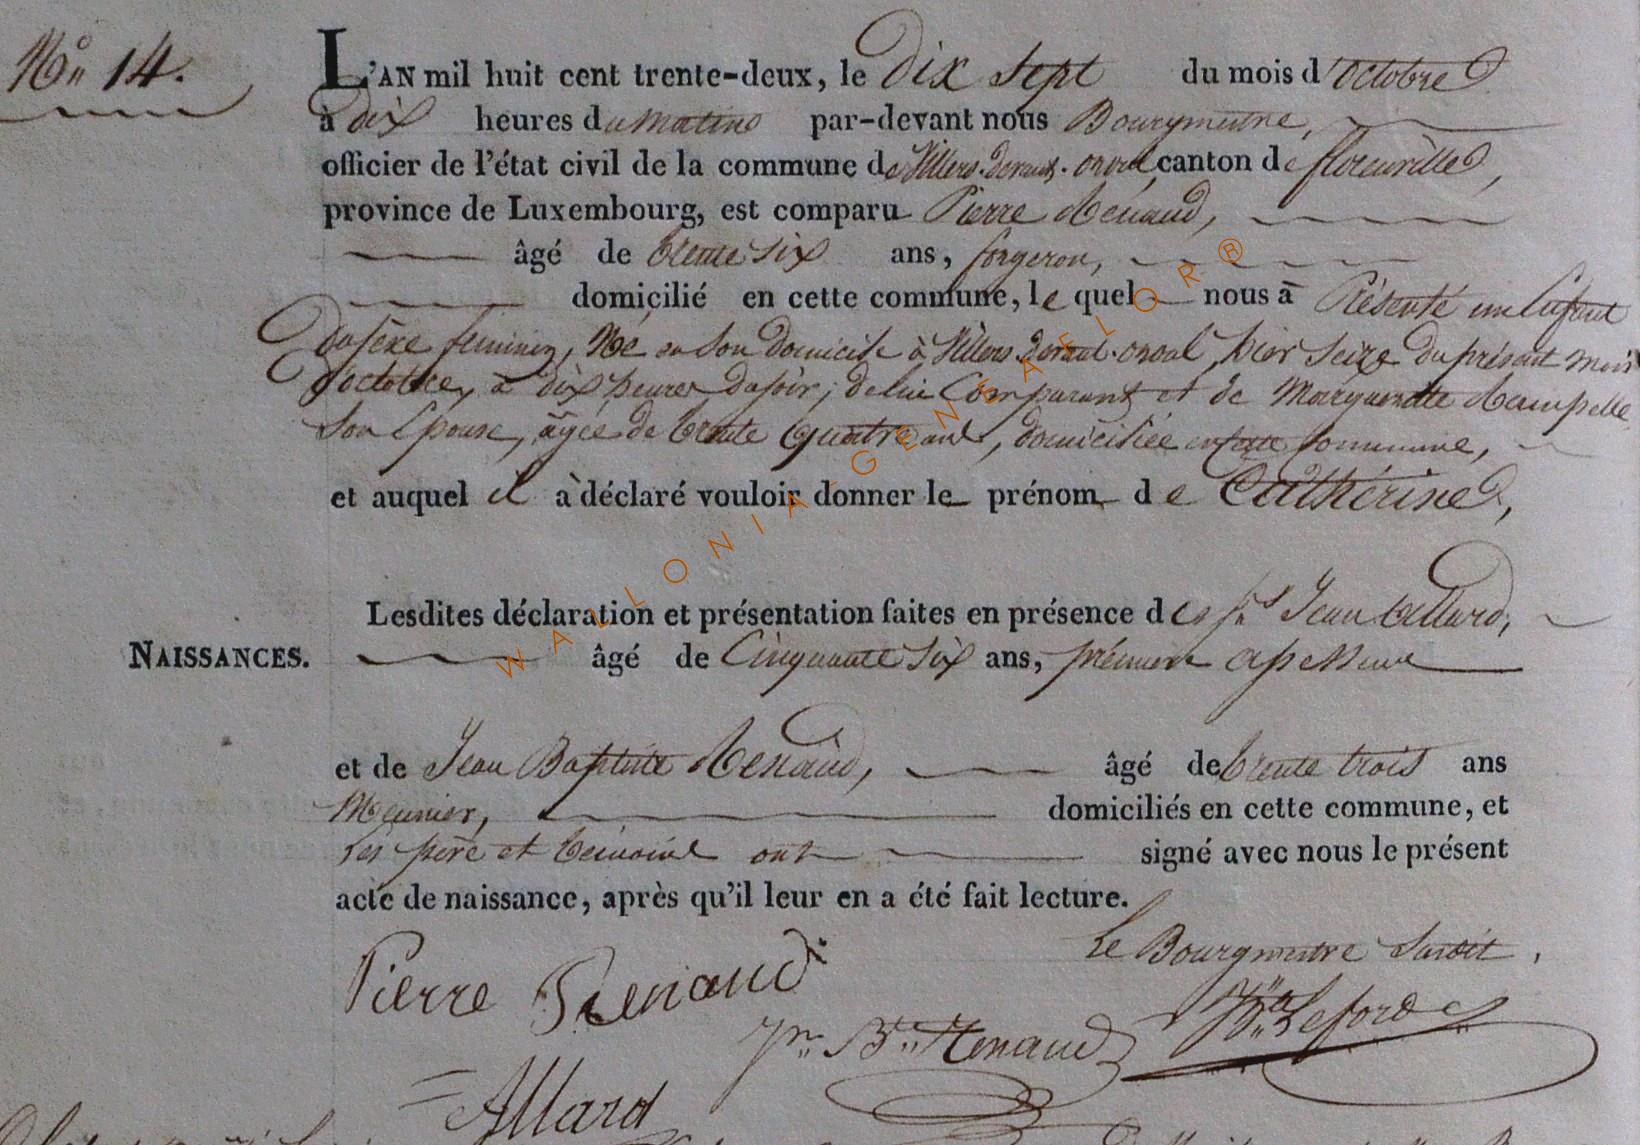 No 14.
L'AN mil huit cent trente-deux, le dix sept du mois d'octobre
à dix heures du matin par-devant nous Bourgmestre,
officier de l'état civil de la commune de Villers-devant-orval, canton de florenville,
province de Luxembourg, est comparu Pierre Renaud,
âgé de trente six ans, forgeron,
domicilié en cette commune, lequel nous à Présenté un Enfant
du sèxe feminin, Né en son domicile à Villers-devant-orval, hier seize du présent mois
d'octobre, à dix heures du soir, de lui Comparant et de Margueritte
son Epouse, âgée de trente quatre ans, domiciliée en cette Commune,
et auquel il à déclaré vouloir donner le prénom de Cathérine,
Lesdites déclaration et présentation faites en présence des Jean Allard,
NAISSANCES. âgé de Cinquante six ans, prémier
et de Jean Baptiste Renaud, âgé de trente trois ans
Meunier, domiciliés en cette commune, et
Les père et témoins ont signé avec nous le présent
acte de naissance, après qu'il leur en a été fait lecture.
Le Bourgmestre susdit,
Pierre Renaud
Jn Bte Renaud
Allard
WALLONIA-GENEAFLOR®